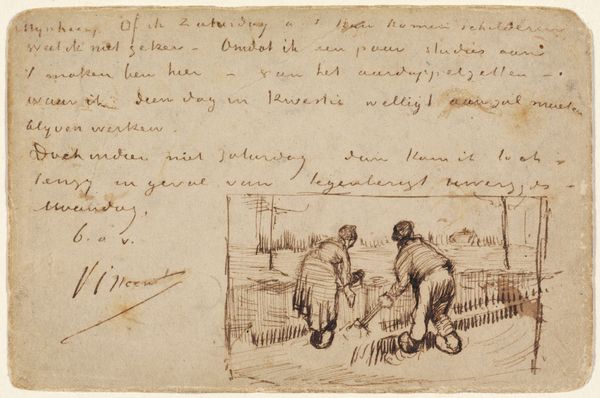 Mynheer, Of ik Zaturdag a.s. kan komen schilderen
weet ik niet zeker – Omdat ik een paar studies aan
't maken ben hier – van het aardappelzetten –
waar ik dien dag in kwestie welligt aan zal moeten
blyven werken.
Doch indien niet Saturdag dan kom ik toch –
tenzy in geval van tegenberigt Uwerzyds –
Maandag.
b.a.v.
Vincent